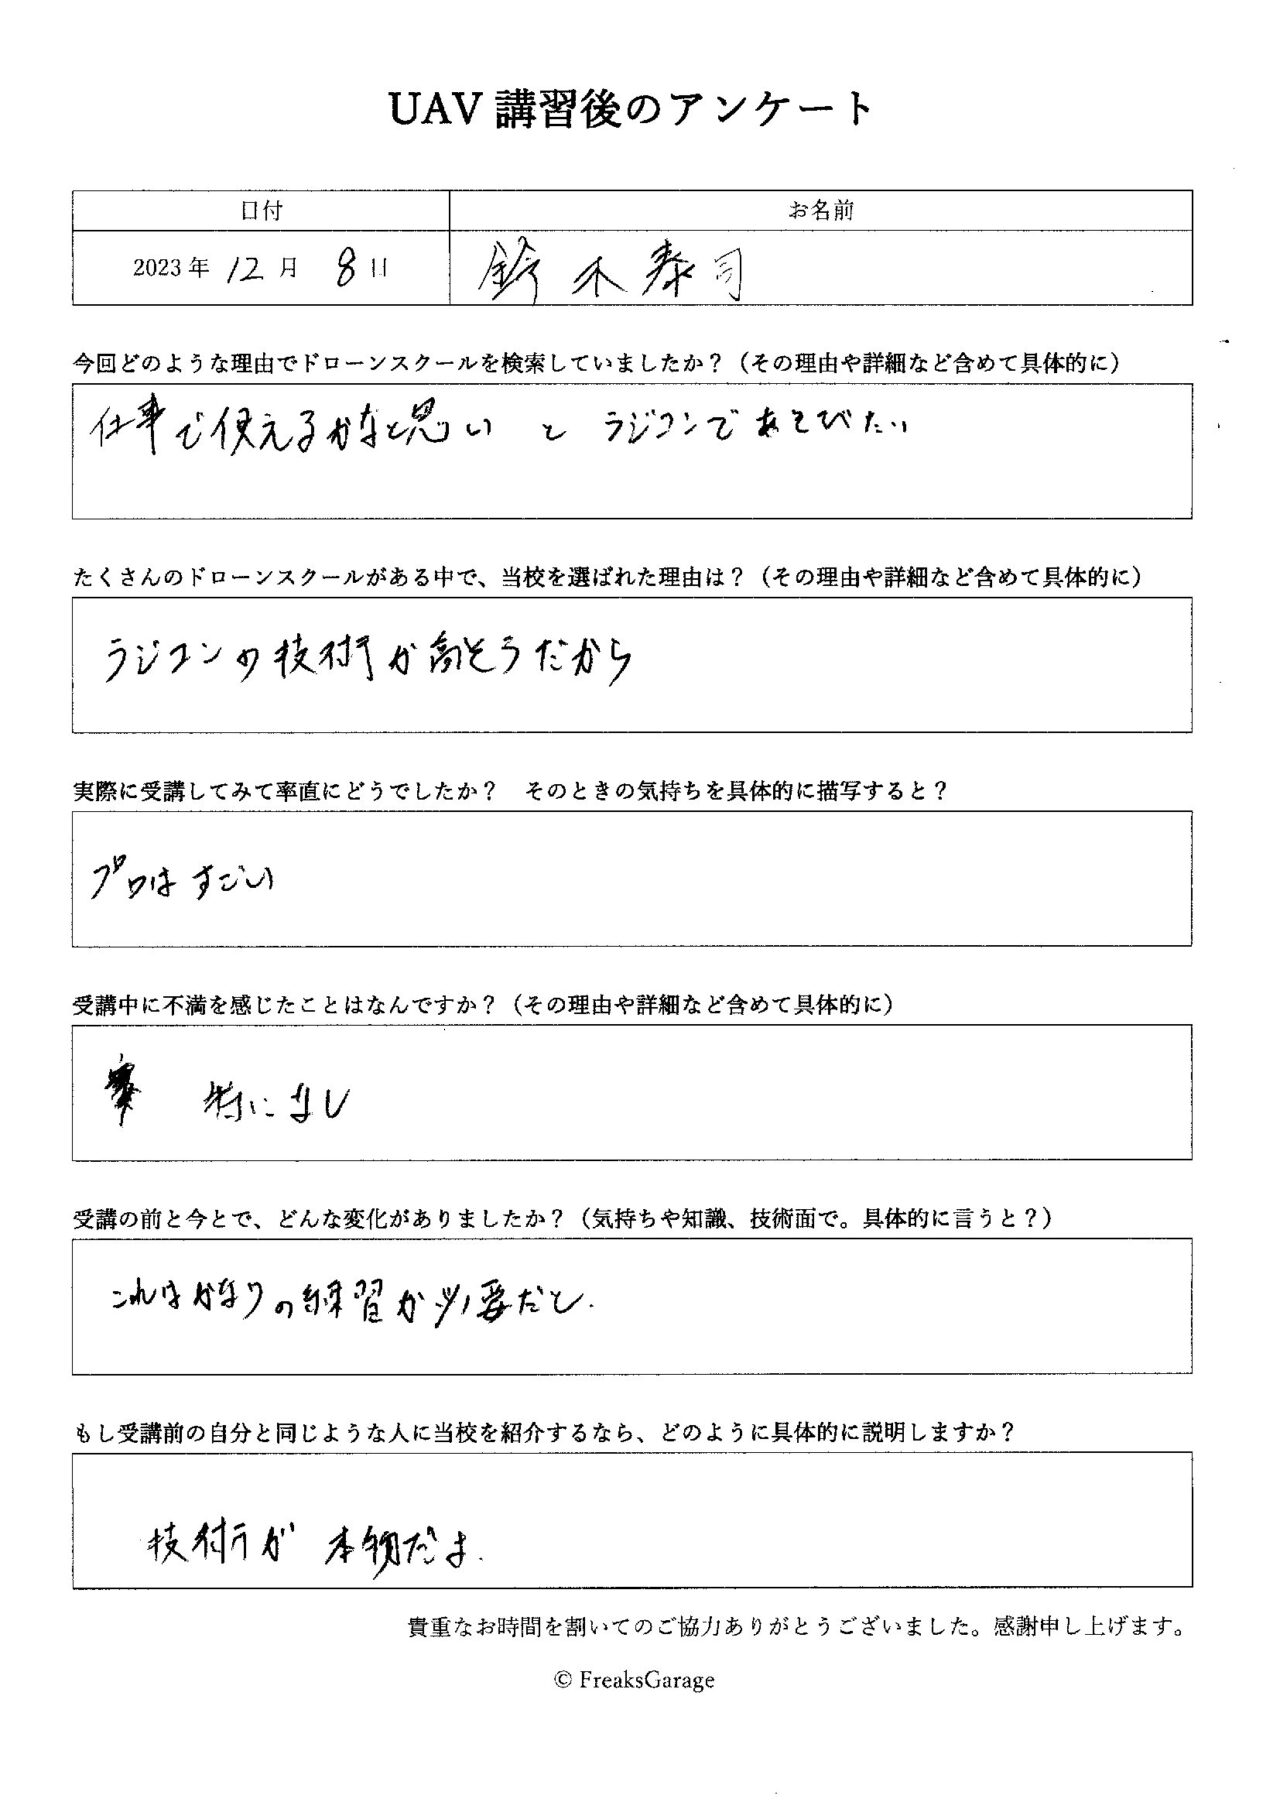 UAV 講習後のアンケート
日付 お名前
2023年 12月 8日 鈴木泰司
今回どのような理由でドローンスクールを検索していましたか？（その理由や詳細など含めて具体的に）
仕事で使えるかなと思い と ラジコンであそびたい
たくさんのドローンスクールがある中で、当校を選ばれた理由は？（その理由や詳細など含めて具体的に）
ラジコンの技術が高そうだから
実際に受講してみて率直にどうでしたか？ そのときの気持ちを具体的に描写すると？
プロはすごい
受講中に不満を感じたことはなんですか？（その理由や詳細など含めて具体的に）
特になし
受講の前と今とで、どんな変化がありましたか？（気持ちや知識、技術面で。具体的に言うと？）
これはかなりの練習が必要だと.
もし受講前の自分と同じような人に当校を紹介するなら、どのように具体的に説明しますか？
技術が 本物だよ.
貴重なお時間を割いてのご協力ありがとうございました。感謝申し上げます。
© FreaksGarage